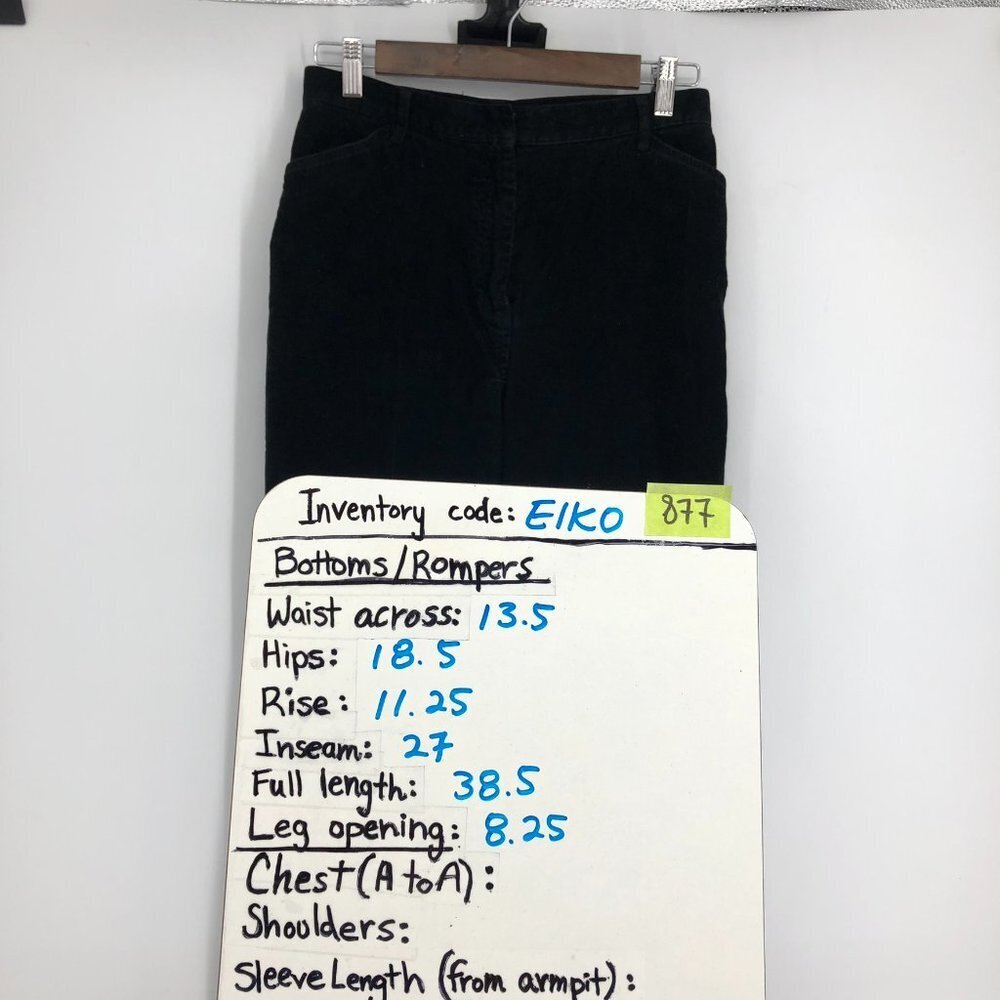 Inventory code: EIKO 877
Bottoms/Rompers
Waist across: 13.5
Hips: 18.5
Rise: 11.25
Inseam: 27
Full length: 38.5
Leg opening: 8.25
Chest (A to A):
Shoulders:
Sleeve Length (from armpit):